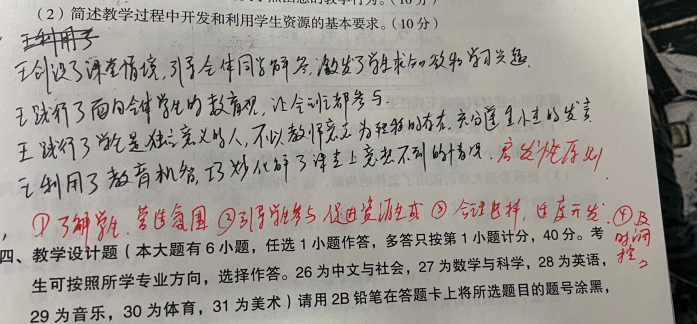 (2)简述教学过程中开发和利用学生资源的基本要求。(10分)
王创设了课堂情境,引导全体同学解答,激发了学生求知欲和学习兴趣.
王践行了面向全体学生的教育观,让全班都参与.
王践行了学生是独立意义的人,不以教师意志为转移的存在,充分尊重小王的发言.
王利用了教育机智,巧妙化解了课堂上意想不到的情况.启发性原则
①了解学生.营造氛围②引导学生参与促进资源生成③合理选择,适度开发.④及时调控
四、教学设计题(本大题有6小题,任选1小题作答,多答只按第1小题计分,40分。考
生可按照所学专业方向,选择作答。26为中文与社会,27为数学与科学,28为英语,
29为音乐,30为体育,31为美术)请用2B铅笔在答题卡上将所选题目的题号涂黑,